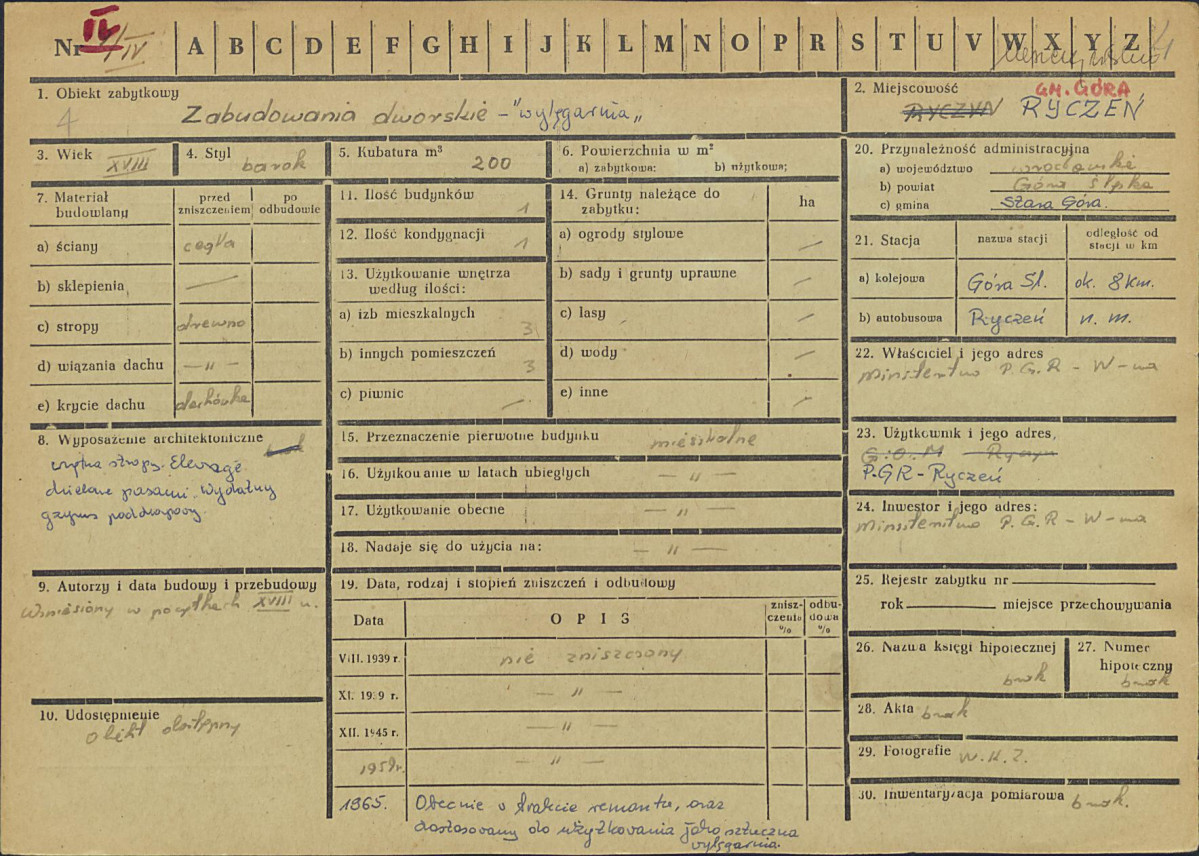 Nr IV /IV A B C D E F G H I J K L M N O P R S T U V W X Y Z
1. Obiekt zabytkowy
4 Zabudowania dworskie - "wylęgarnia„
2. Miejscowość GM. GÓRA
RYCZYN RYCZEŃ
3. Wiek XVIII
4. Styl barok
5. Kubatura m³ 200
6. Powierzchnia w m²
a) zabytkowa: b) użytkowa;
7. Materiał budowlany
przed zniszczeniem
po odbudowie
a) ściany cegła
b) sklepienia —
c) stropy drewno
d) wiązania dachu — " —
e) krycie dachu dachówka
8. Wyposażenie architektoniczne brak
stropy. Elewacje
dzielone pasami, wydatny
gzyms poddachowy.
9. Autorzy i data budowy i przebudowy
Wzniesiony w początkach XVIII w.
10. Udostępnienie
obiekt dostępny
11. Ilość budynków 1
12. Ilość kondygnacji 1
13. Użytkowanie wnętrza
według ilości:
a) izb mieszkalnych 3
b) innych pomieszczeń 3
c) piwnic —
14. Grunty należące do
zabytku: ha
a) ogrody stylowe —
b) sady i grunty uprawne —
c) lasy —
d) wody —
e) inne —
15. Przeznaczenie pierwotne budynku mieszkalne
16. Użytkowanie w latach ubiegłych — " —
17. Użytkowanie obecne — " —
18. Nadaje się do użycia na: — " —
19. Data, rodzaj i stopień zniszczeń i odbudowy
Data OPIS zniszczenia % odbudowa %
VIII. 1939 r. nie zniszczony
XI. 1939 r. — " —
XII. 1945 r. — " —
1959r. — " —
1965. Obecnie w trakcie remontu, oraz
dostosowany do użytkowania jako sztuczna
wylęgarnia.
20. Przynależność administracyjna
a) województwo wrocławskie
b) powiat Góra Śląska
c) gmina Stara Góra.
21. Stacja nazwa stacji odległość od stacji w km
a) kolejowa Góra Śl. ok. 8 km.
b) autobusowa Ryczeń n. m.
22. Właściciel i jego adres
Ministerstwo P.G.R - W-wa
23. Użytkownik i jego adres,
G.O.M Ryczyn
P.GR - Ryczeń
24. Inwestor i jego adres:
Ministerstwo P.G.R - W-wa
25. Rejestr zabytku nr
rok miejsce przechowywania
26. Nazwa księgi hipotecznej
brak
27. Numer
hipoteczny
brak
28. Akta brak
29. Fotografie W.K.Z.
30. Inwentaryzacja pomiarowa brak.